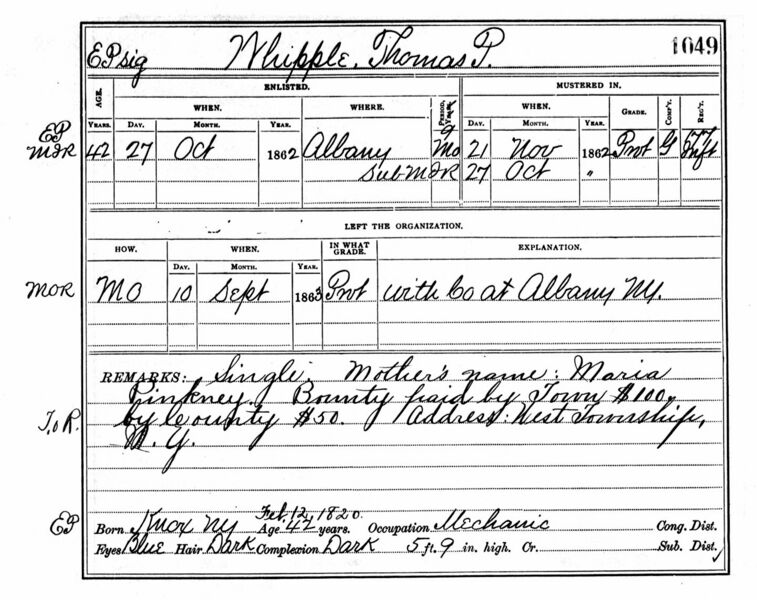 EP sig Whipple, Thomas P. 1049
AGE. ENLISTED. MUSTERED IN.
WHEN. WHERE. PERIOD, YEARS. WHEN. GRADE. COMP'Y. REG'T.
YEARS. DAY. MONTH. YEAR. DAY. MONTH. YEAR.
EP
MIR 42 27 Oct 1862 Albany 9 Mo 21 Nov 1862 Pvt G 177 Inft
Sub MIR 27 Oct "
LEFT THE ORGANIZATION.
HOW. WHEN. IN WHAT GRADE. EXPLANATION.
DAY. MONTH. YEAR.
MOR MO 10 Sept 1863 Pvt with Co at Albany NY.
REMARKS: Single. Mother's name: Maria
Pinkney. Bounty paid by Town $100,
T.o.R. by County $50. Address: West Township,
N. Y.
Feb. 12, 1820.
EP Born Knox NY Age 42 years. Occupation Mechanic Cong. Dist.
Eyes Blue Hair Dark Complexion Dark 5 ft. 9 in. high. Cr. Sub. Dist.